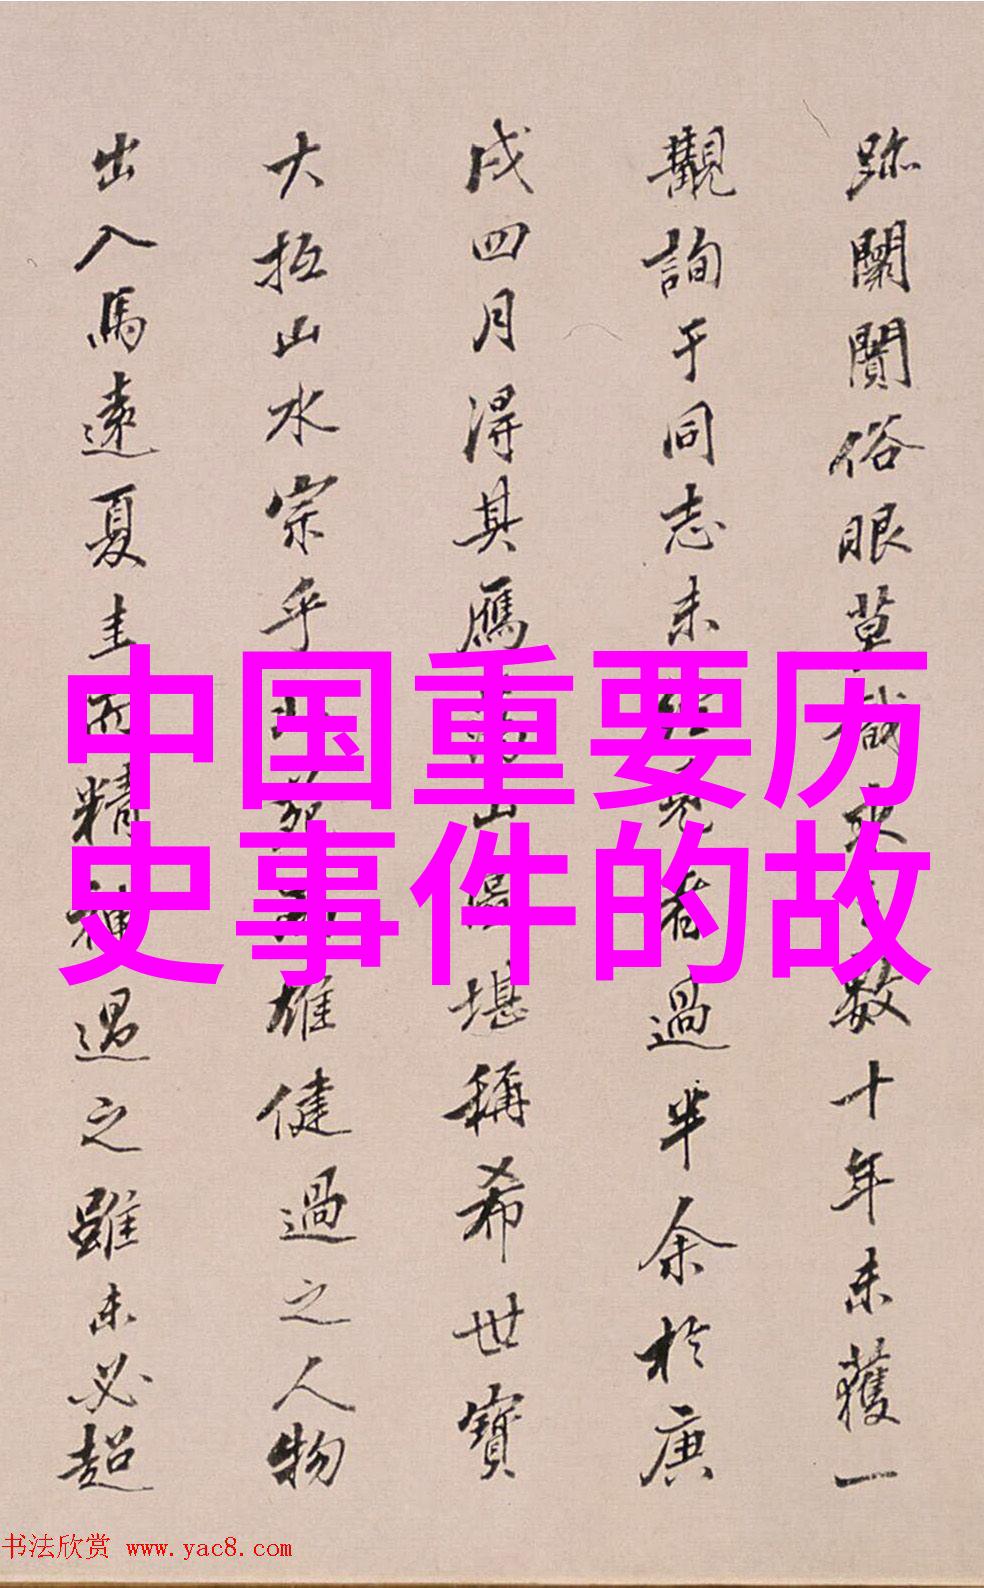 跡闤闠俗眼草 數十年未獲一
觀詢于同志未 過半余於庚
戌四月得其鴈 堪稱希世寶
大抵山水宗乎 雄健過之人物
出入馬遠夏圭而精神過之雖未必超
中国重要历
史事件的故
书法欣赏 www.yac8.com